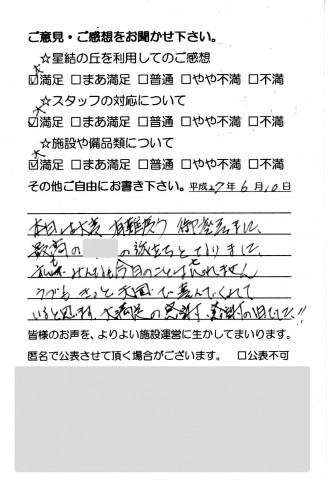 ご意見・ご感想をお聞かせ下さい。
☆星結の丘を利用してのご感想
☑満足 □まあ満足 □普通 □やや不満 □不満
☆スタッフの対応について
☑満足 □まあ満足 □普通 □やや不満 □不満
☆施設や備品類について
☑満足 □まあ満足 □普通 □やや不満 □不満
その他ご自由にお書き下さい。平成27年6月10日
本日は大変 有難度う 御座居ました、
最高の の旅立ちとなりました、
みんなも今日のことは忘れません
きっと天国で喜んでくれて
いると思います、大満足の 感謝の日でした!!
皆様のお声を、よりよい施設運営に生かしてまいります。
匿名で公表させて頂く場合がございます。 □公表不可